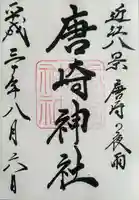 近江八景 唐崎の夜雨
唐崎神社
平成三十年八月六日